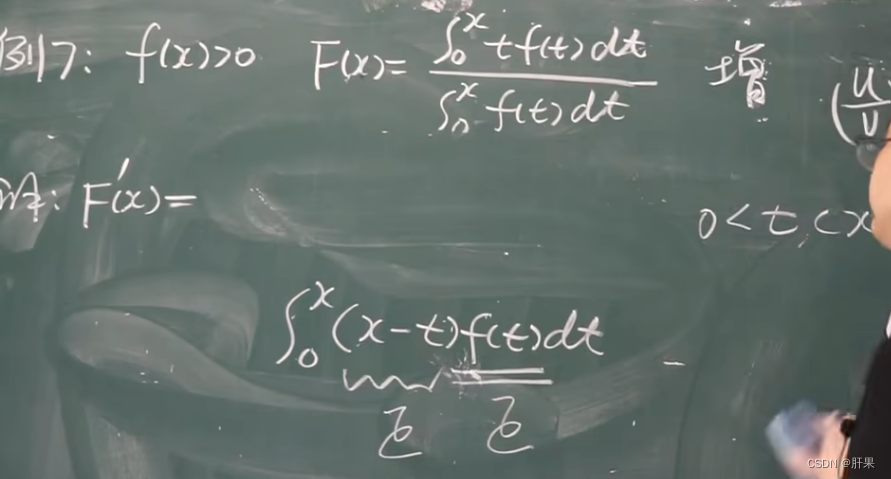 例17: f(x)>0 F(x)= ∫₀ˣ t f(t) dt / ∫₀ˣ f(t) dt 增 (u/v
F'(x)=
0<t<x
∫₀ˣ (x-t) f(t) dt
正 正
CSDN @肝果